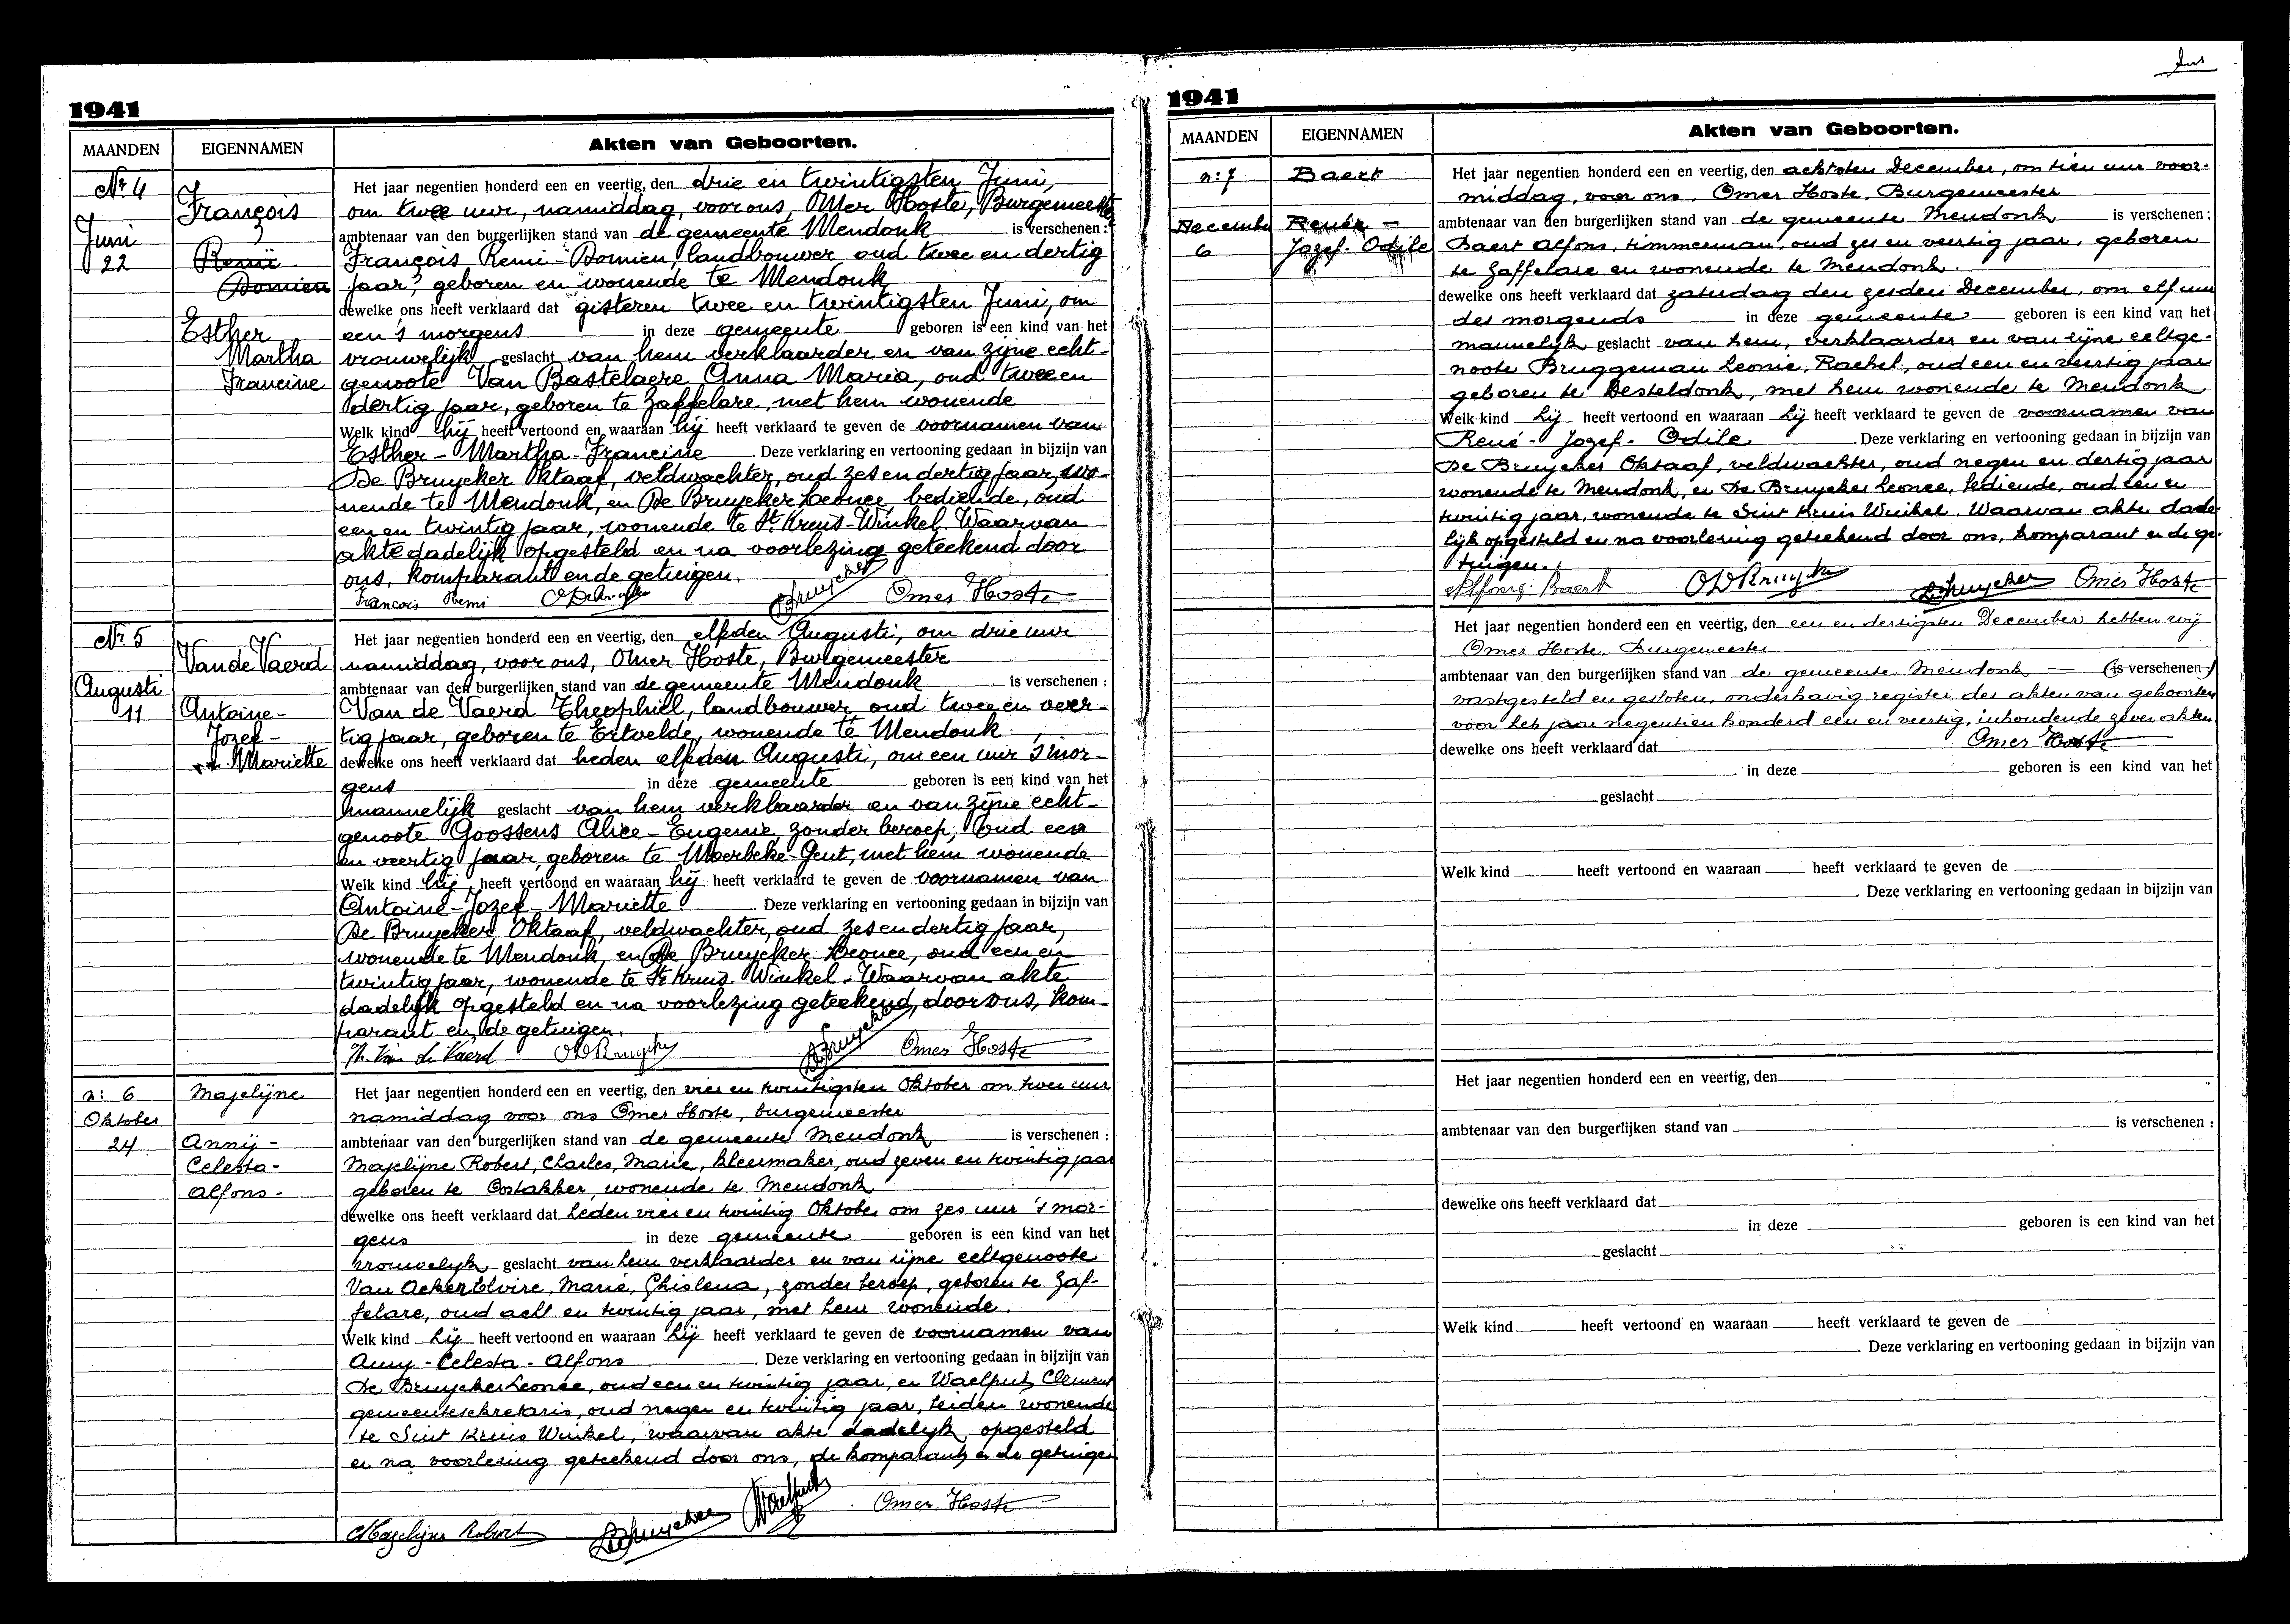 1941
MAANDEN
EIGENNAMEN
Akten van Geboorten.
Nr 4
Juni
22
François
Remi
Domien
Esther
Martha
Francine
Het jaar negentien honderd een en veertig, den drie en twintigsten Juni,
om twee uur, namiddag, voor ons, Omer Hoste, Burgemeester
ambtenaar van den burgerlijken stand van de gemeente Mendonk is verschenen :
François Remi-Domien, landbouwer, oud twee en dertig
jaar, geboren en wonende te Mendonk
dewelke ons heeft verklaard dat gisteren twee en twintigsten Juni, om
een 's morgens in deze gemeente geboren is een kind van het
vrouwelijk geslacht van hem verklaarder en van zijne echt-
genoote Van Bastelaere Anna Maria, oud twee en
dertig jaar, geboren te Zaffelare, met hem wonende
Welk kind hij heeft vertoond en waaraan hij heeft verklaard te geven de voornamen van
Esther - Martha - Francine. Deze verklaring en vertooning gedaan in bijzijn van
De Bruycker Oktaaf, veldwachter, oud zes en dertig jaar, wo-
nende te Mendonk, en De Bruycker Leonce, bediende, oud
een en twintig jaar, wonende te St Kruis-Winkel. Waarvan
akte dadelijk opgesteld en na voorlezing geteekend door
ons, komparant en de getuigen.
Francois Remi ODeBruycker DeBruycker Omer Hoste
Nr 5
Augusti
11
Van de Vaerd
Antoine-
Jozef-
Mariette
Het jaar negentien honderd een en veertig, den elfden Augusti, om drie uur
namiddag, voor ons, Omer Hoste, Burgemeester
ambtenaar van den burgerlijken stand van de gemeente Mendonk is verschenen :
Van de Vaerd Theophiel, landbouwer, oud twee en veer-
tig jaar, geboren te Ertvelde, wonende te Mendonk
dewelke ons heeft verklaard dat heden elfden Augusti, om een uur 's mor-
gens in deze gemeente geboren is een kind van het
mannelijk geslacht van hem verklaarder en van zijne echt-
genoote Goossens Alice-Eugenie, zonder beroep, oud een
en veertig jaar, geboren te Moerbeke-Gent, met hem wonende
Welk kind hij heeft vertoond en waaraan hij heeft verklaard te geven de voornamen van
Antoine-Jozef-Mariette. Deze verklaring en vertooning gedaan in bijzijn van
De Bruycker Oktaaf, veldwachter, oud zes en dertig jaar,
wonende te Mendonk, en De Bruycker Leonce, oud een en
twintig jaar, wonende te St Kruis-Winkel. Waarvan akte
dadelijk opgesteld en na voorlezing geteekend, door ons, kom-
parant en de getuigen.
Th. Van de Vaerd ODeBruycker DeBruycker Omer Hoste
n: 6
Oktober
24
Majelijne
Annij-
Celesta-
Alfons-
Het jaar negentien honderd een en veertig, den vier en twintigsten Oktober om twee uur
namiddag voor ons Omer Hoste, burgemeester
ambtenaar van den burgerlijken stand van de gemeente Mendonk is verschenen :
Majelijne Robert, Charles, Marie, kleermaker, oud zeven en twintig jaar
geboren te Oostakker, wonende te Mendonk
dewelke ons heeft verklaard dat heden vier en twintig Oktober om zes uur 's mor-
gens in deze gemeente geboren is een kind van het
vrouwelijk geslacht van hem verklaarder en van zijne echtgenoote
Van Acker Elvire, Marie, Ghislena, zonder beroep, geboren te Zaf-
felare, oud acht en twintig jaar, met hem wonende.
Welk kind hij heeft vertoond en waaraan hij heeft verklaard te geven de voornamen van
Anny - Celesta - Alfons. Deze verklaring en vertooning gedaan in bijzijn van
De Bruycker Leonce, oud een en twintig jaar, en Waelput Clement
gemeentesekretaris, oud negen en twintig jaar, beiden wonende
te Sint Kruis Winkel, waarvan akte dadelijk opgesteld
en na voorlezing geteekend door ons, de komparant, en de getuigen
Majelijne Robert DeBruycker Waelput Omer Hoste
1941
MAANDEN
EIGENNAMEN
Akten van Geboorten.
n: 7
December
6
Baert
René -
Jozef- Odile
Het jaar negentien honderd een en veertig, den achtsten December, om tien uur voor-
middag, voor ons, Omer Hoste, Burgemeester
ambtenaar van den burgerlijken stand van de gemeente Mendonk is verschenen :
Baert Alfons, timmerman, oud zes en veertig jaar, geboren
te Zaffelare en wonende te Mendonk.
dewelke ons heeft verklaard dat zaterdag den zesden December, om elf uur
des morgends in deze gemeente geboren is een kind van het
mannelijk geslacht van hem, verklaarder en van zijne echtge-
noote Bruggeman Leonie, Rachel, oud een en veertig jaar
geboren te Desteldonk, met hem wonende te Mendonk
Welk kind hij heeft vertoond en waaraan hij heeft verklaard te geven de voornamen van
René - Jozef - Odile. Deze verklaring en vertooning gedaan in bijzijn van
De Bruycker Oktaaf, veldwachter, oud negen en dertig jaar
wonende te Mendonk, en De Bruycker Leonce, bediende, oud een en
twintig jaar, wonende te Sint Kruis Winkel. Waarvan akte dade-
lijk opgesteld en na voorlezing geteekend door ons, komparant en de ge-
tuigen.
Alfons Baert ODeBruycker DeBruycker Omer Hoste
Het jaar negentien honderd een en veertig, den een en dertigsten December hebben wij
Omer Hoste, Burgemeester
ambtenaar van den burgerlijken stand van de gemeente Mendonk (is verschenen)
vastgesteld en gesloten, onderhavig register der akten van geboorten
voor het jaar negentien honderd een en veertig, inhoudende zeven akten.
dewelke ons heeft verklaard dat Omer Hoste
in deze geboren is een kind van het
geslacht
Welk kind heeft vertoond en waaraan heeft verklaard te geven de
. Deze verklaring en vertooning gedaan in bijzijn van
Het jaar negentien honderd een en veertig, den
ambtenaar van den burgerlijken stand van is verschenen :
dewelke ons heeft verklaard dat
in deze geboren is een kind van het
geslacht
Welk kind heeft vertoond en waaraan heeft verklaard te geven de
. Deze verklaring en vertooning gedaan in bijzijn van